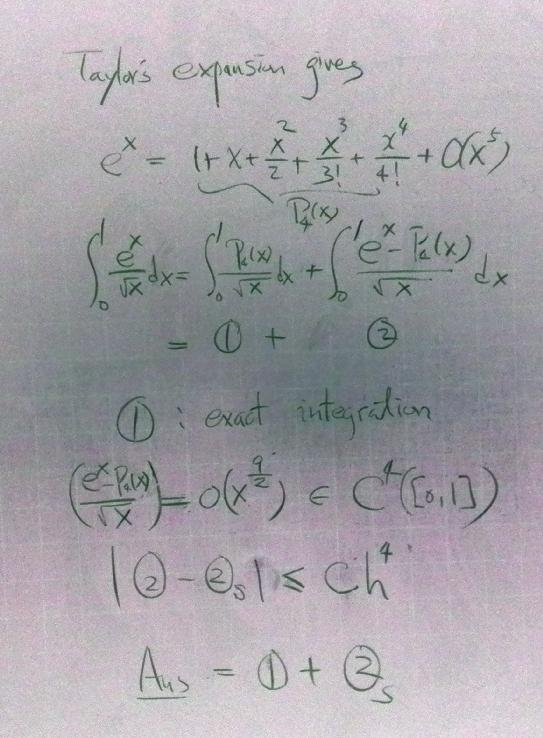 Taylor's expansion gives
e^x = 1 + x + x^2/2 + x^3/3! + x^4/4! + O(x^5)
P_4(x)
∫_0^1 e^x/√x dx = ∫_0^1 P_4(x)/√x dx + ∫_0^1 (e^x - P_4(x))/√x dx
= ① + ②
① : exact integration
((e^x - P_4(x))/√x) = O(x^{9/2}) ∈ C^4([0,1])
|② - ②_s| ≤ Ch^4
Ans = ① + ②_s